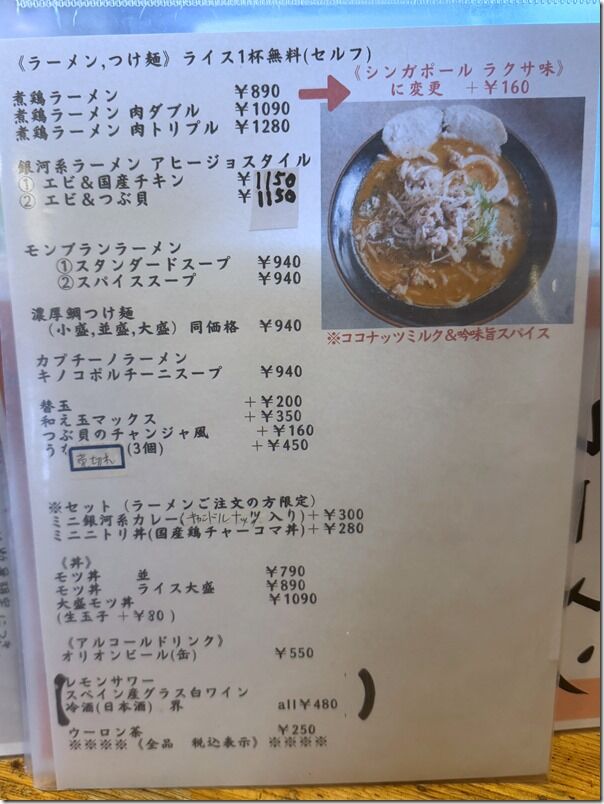 《ラーメン,つけ麺》 ライス1杯無料(セルフ)
煮鶏ラーメン ￥890
煮鶏ラーメン 肉ダブル ￥1090
煮鶏ラーメン 肉トリプル ￥1280
《シンガポール ラクサ味》
に変更 ＋￥160
銀河系ラーメン アヒージョスタイル
① エビ＆国産チキン ￥1150
② エビ＆つぶ貝 ￥1150
モンブランラーメン
①スタンダードスープ ￥940
②スパイススープ ￥940
※ココナッツミルク＆吟味旨スパイス
濃厚鯛つけ麺
(小盛,並盛,大盛) 同価格 ￥940
カプチーノラーメン
キノコポルチーニスープ ￥940
替玉 ＋￥200
和え玉マックス ＋￥350
つぶ貝のチャンジャ風 ＋￥160
う 売切れ (3個) ＋￥450
※セット (ラーメンご注文の方限定)
ミニ銀河系カレー(キャンドルナッツ入り)＋￥300
ミニニトリ丼(国産鶏チャーコマ丼)＋￥280
《丼》
モツ丼 並 ￥790
モツ丼 ライス大盛 ￥890
大盛モツ丼 ￥1090
(生玉子 ＋￥80)
《アルコールドリンク》
オリオンビール(缶) ￥550
レモンサワー
スペイン産グラス白ワイン
冷酒(日本酒) 界 all￥480
ウーロン茶 ￥250
※※※※《全品 税込表示》※※※※